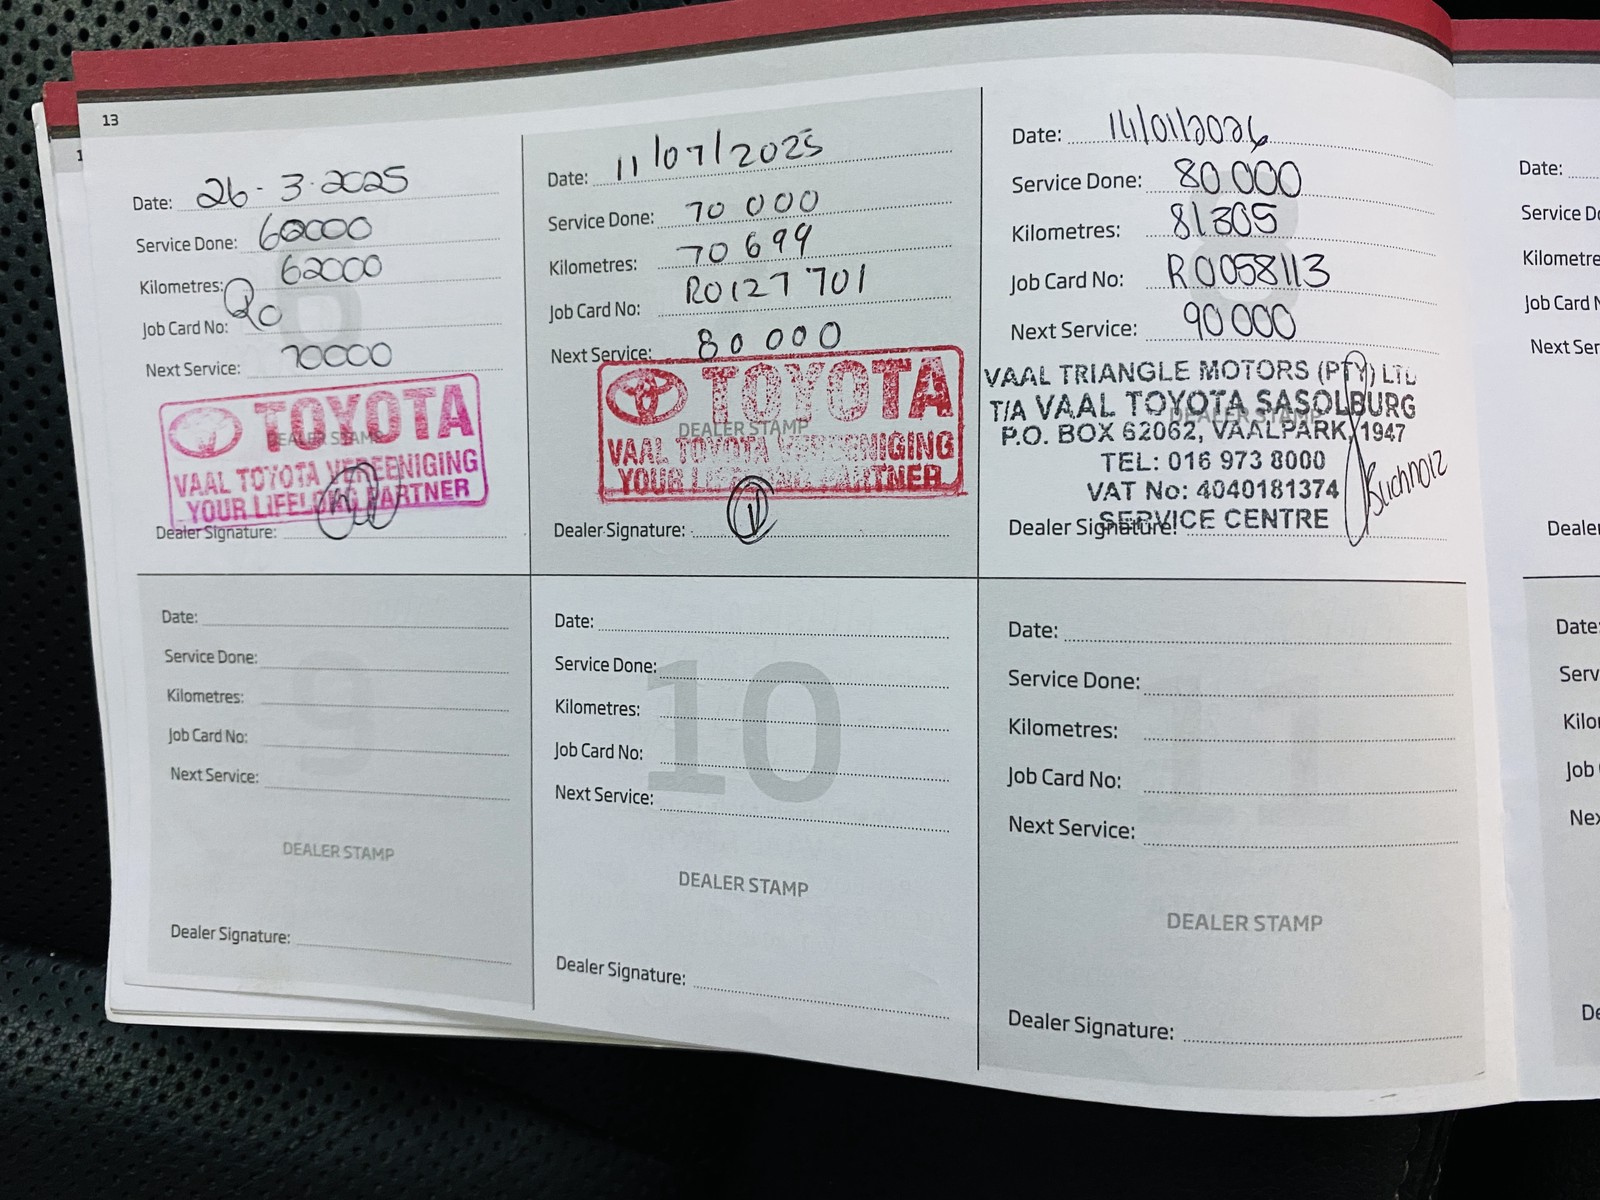 13
Date: 26-3-2025
Service Done: 60000
Kilometres: 62000
Job Card No: RO
Next Service: 70000
DEALER STAMP
TOYOTA
VAAL TOYOTA VEREENIGING
YOUR LIFELONG PARTNER
Dealer Signature:
Date: 11/07/2025
Service Done: 70 000
Kilometres: 70 699
Job Card No: RO127701
Next Service: 80 000
DEALER STAMP
TOYOTA
VAAL TOYOTA VEREENIGING
YOUR LIFELONG PARTNER
Dealer Signature:
8
Date: 14/01/2026
Service Done: 80 000
Kilometres: 81305
Job Card No: RO058113
Next Service: 90 000
VAAL TRIANGLE MOTORS (PTY) LTD
DEALER STAMP
T/A VAAL TOYOTA SASOLBURG
P.O. BOX 62062, VAALPARK, 1947
TEL: 016 973 8000
VAT No: 4040181374
SERVICE CENTRE
Dealer Signature:
9
Date:
Service Done:
Kilometres:
Job Card No:
Next Service:
DEALER STAMP
Dealer Signature:
10
Date:
Service Done:
Kilometres:
Job Card No:
Next Service:
DEALER STAMP
Dealer Signature:
11
Date:
Service Done:
Kilometres:
Job Card No:
Next Service:
DEALER STAMP
Dealer Signature:
Date:
Service
Kilometre
Job Card
Next
Dealer
Date:
Job